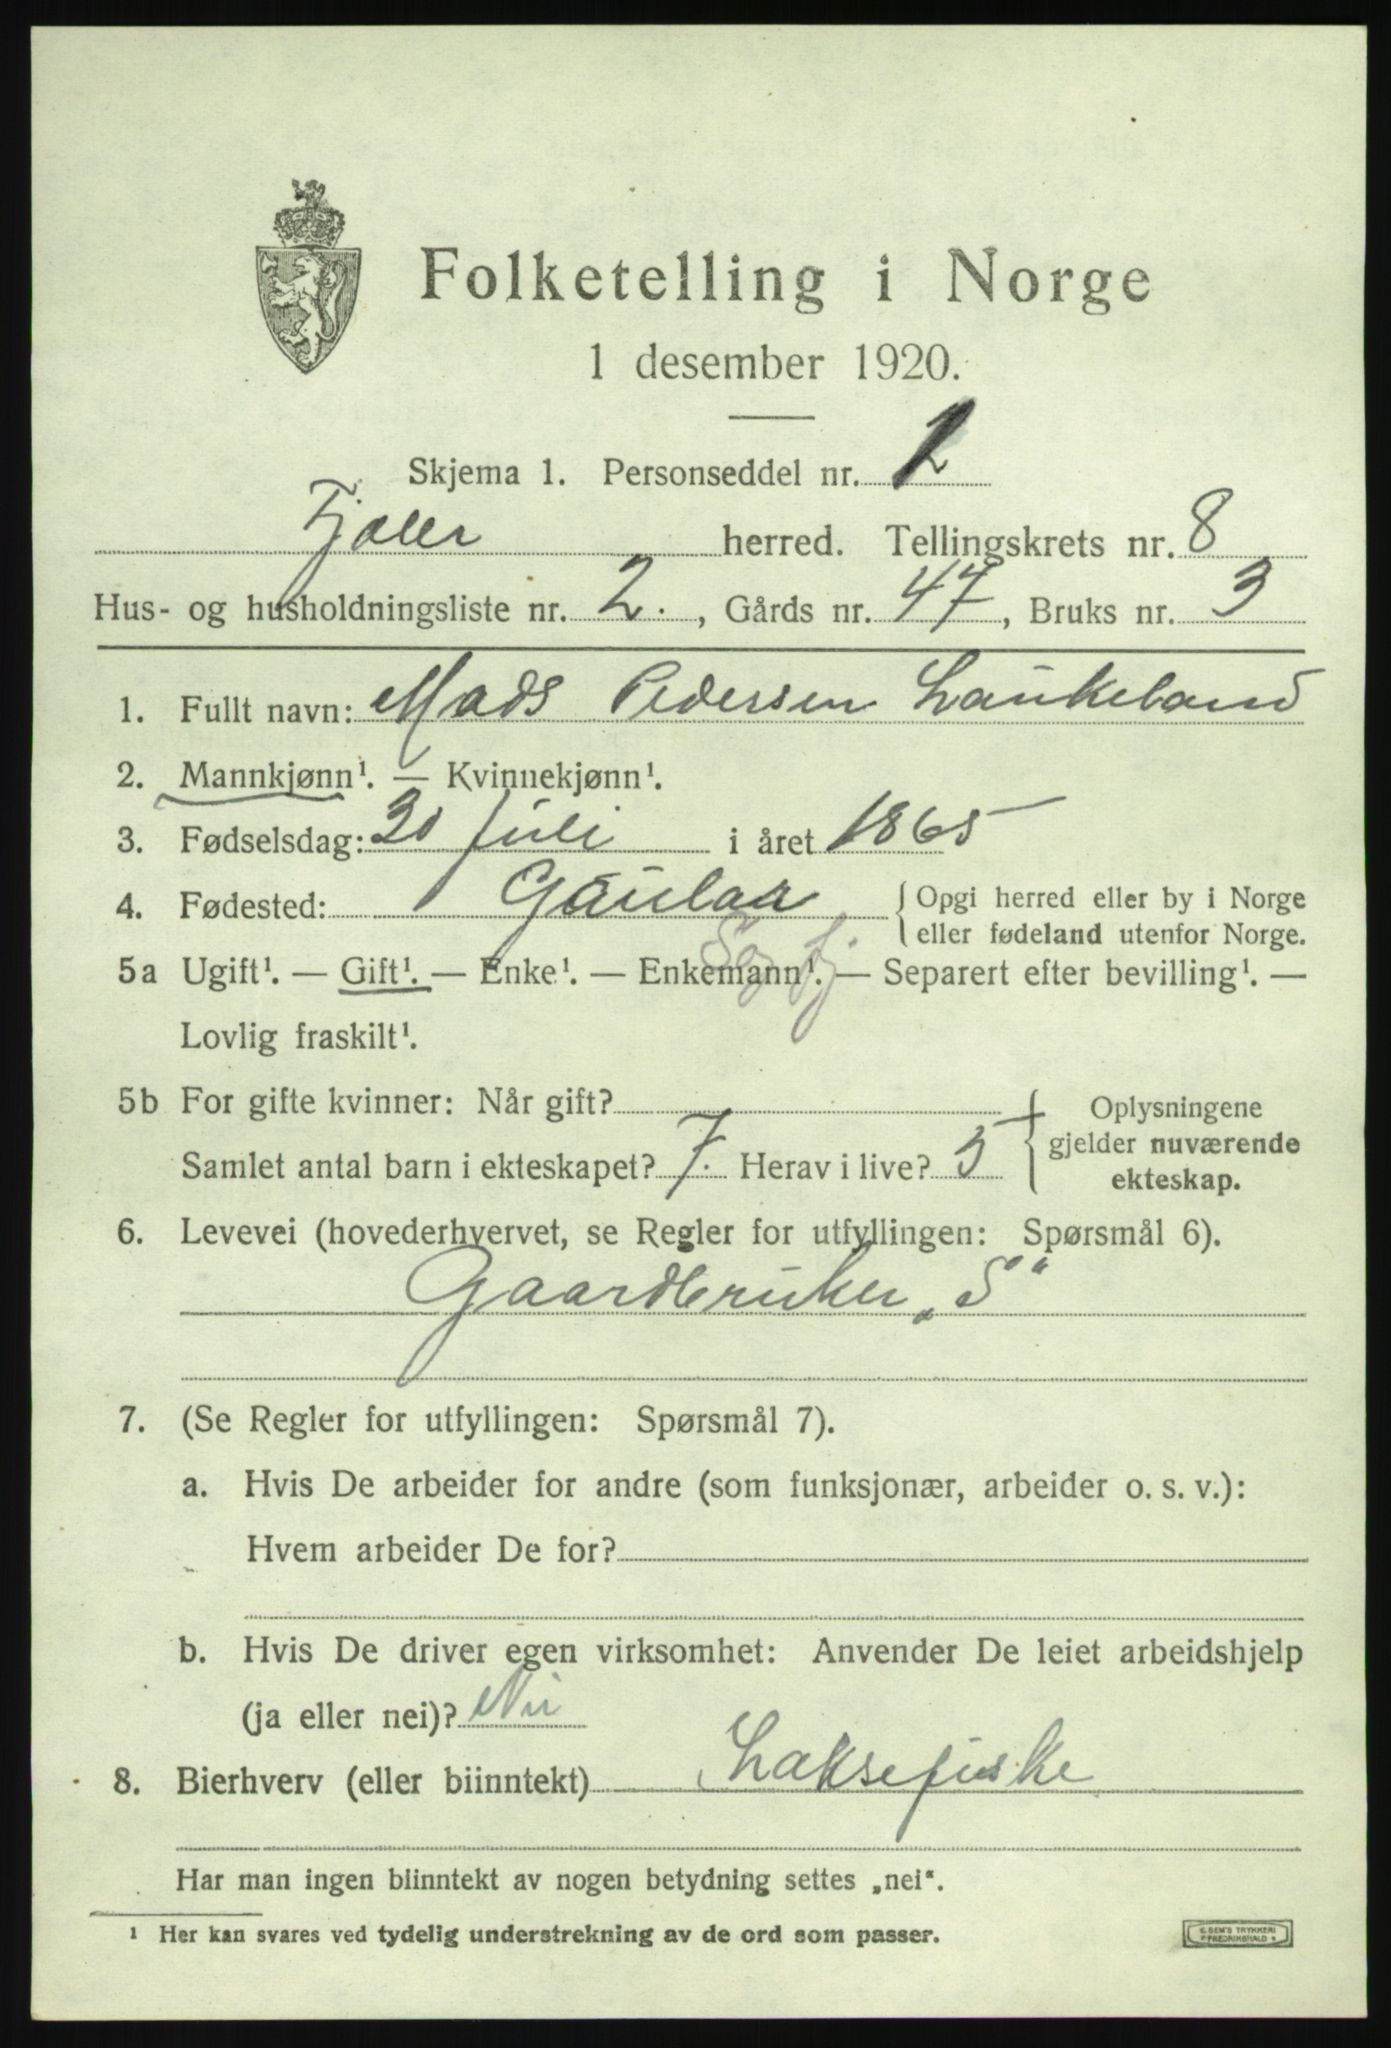 Folketelling i Norge
1 desember 1920.
Skjema 1. Personseddel nr. 1
Fjaler herred. Tellingskrets nr. 8
Hus- og husholdningsliste nr. 2. , Gårds nr. 47, Bruks nr. 3
1. Fullt navn: Mads Pedersen Laukeland
2. Mannkjønn¹. — Kvinnekjønn¹.
3. Fødselsdag: 30 Juli i året 1865
4. Fødested: Gaular { Opgi herred eller by i Norge
eller fødeland utenfor Norge.
Sogn fj
5a Ugift¹. — Gift¹. — Enke¹. — Enkemann¹. — Separert efter bevilling¹. —
Lovlig fraskilt¹.
5b For gifte kvinner: Når gift? Oplysningene
gjelder nuværende
Samlet antal barn i ekteskapet? 7. Herav i live? 5 ekteskap.
6. Levevei (hovederhvervet, se Regler for utfyllingen: Spørsmål 6).
Gaardbruker „S“
7. (Se Regler for utfyllingen: Spørsmål 7).
a. Hvis De arbeider for andre (som funksjonær, arbeider o. s. v.):
Hvem arbeider De for?
b. Hvis De driver egen virksomhet: Anvender De leiet arbeidshjelp
(ja eller nei)? Nei
8. Bierhverv (eller biinntekt) Laksefiske
Har man ingen biinntekt av nogen betydning settes „nei“.
¹ Her kan svares ved tydelig understrekning av de ord som passer.
E. SEM'S TRYKKERI
FREDRIKSHALD